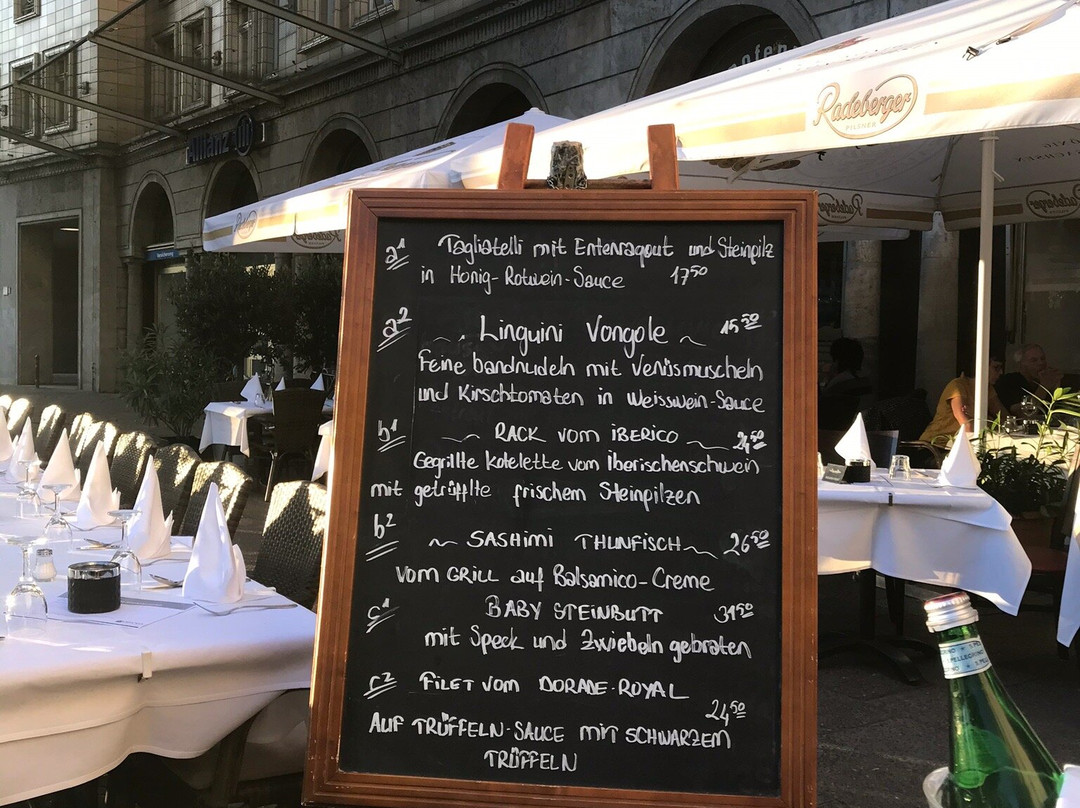 Allianz
Radeberger
PILSNER
Radeberger
Radeberger
a1 Tagliatelli mit Entenragout und Steinpilz
in Honig-Rotwein-Sauce 17 50
a2 ~ Linguini Vongole ~ 15 50
Feine bandnudeln mit Venusmuscheln
und Kirschtomaten in Weisswein-Sauce
b1 ~ RACK VOM iBERiCO ~ 24 50
Gegrillte Kotelette vom iberischenschwein
mit getrüfflte frischem Steinpilzen
b2 ~ SASHIMI THUNFISCH ~ 26 50
VOM GRILL auf Balsamico-Creme
c1 BABY STEINBUTT 31 50
mit Speck und Zwiebeln gebraten
c2 FILET VOM DORADE-ROYAL
24 50
AUF TRÜFFELN-SAUCE MIT SCHWARZEM
TRÜFFELN
PELLEGRINO